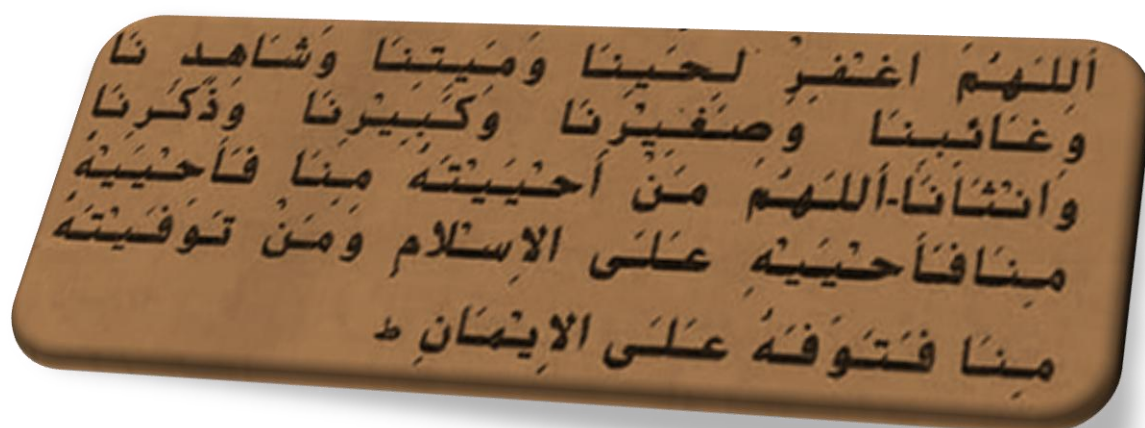 أَللَهُمَ اغْفِرْ لِحَيِنَا وَمَيِتِنَا وَشَاهِدِ نَا
وَغَائِبِنَا وَصَغِيْرِنَا وَكَبِيْرِنَا وَذَكَرِنَا
وَانْثَانَا-أَللَهُمَ مَنْ أَحْيَيْتَهُ مِنَا فَأَحْيِيْهِ
مِنَافَأَحْيِيْهِ عَلَى الاِسْلَامِ وَمَنْ تَوَفَيْتَهُ
مِنَا فَتَوَفَهُ عَلَى الاِيْمَانِ ط